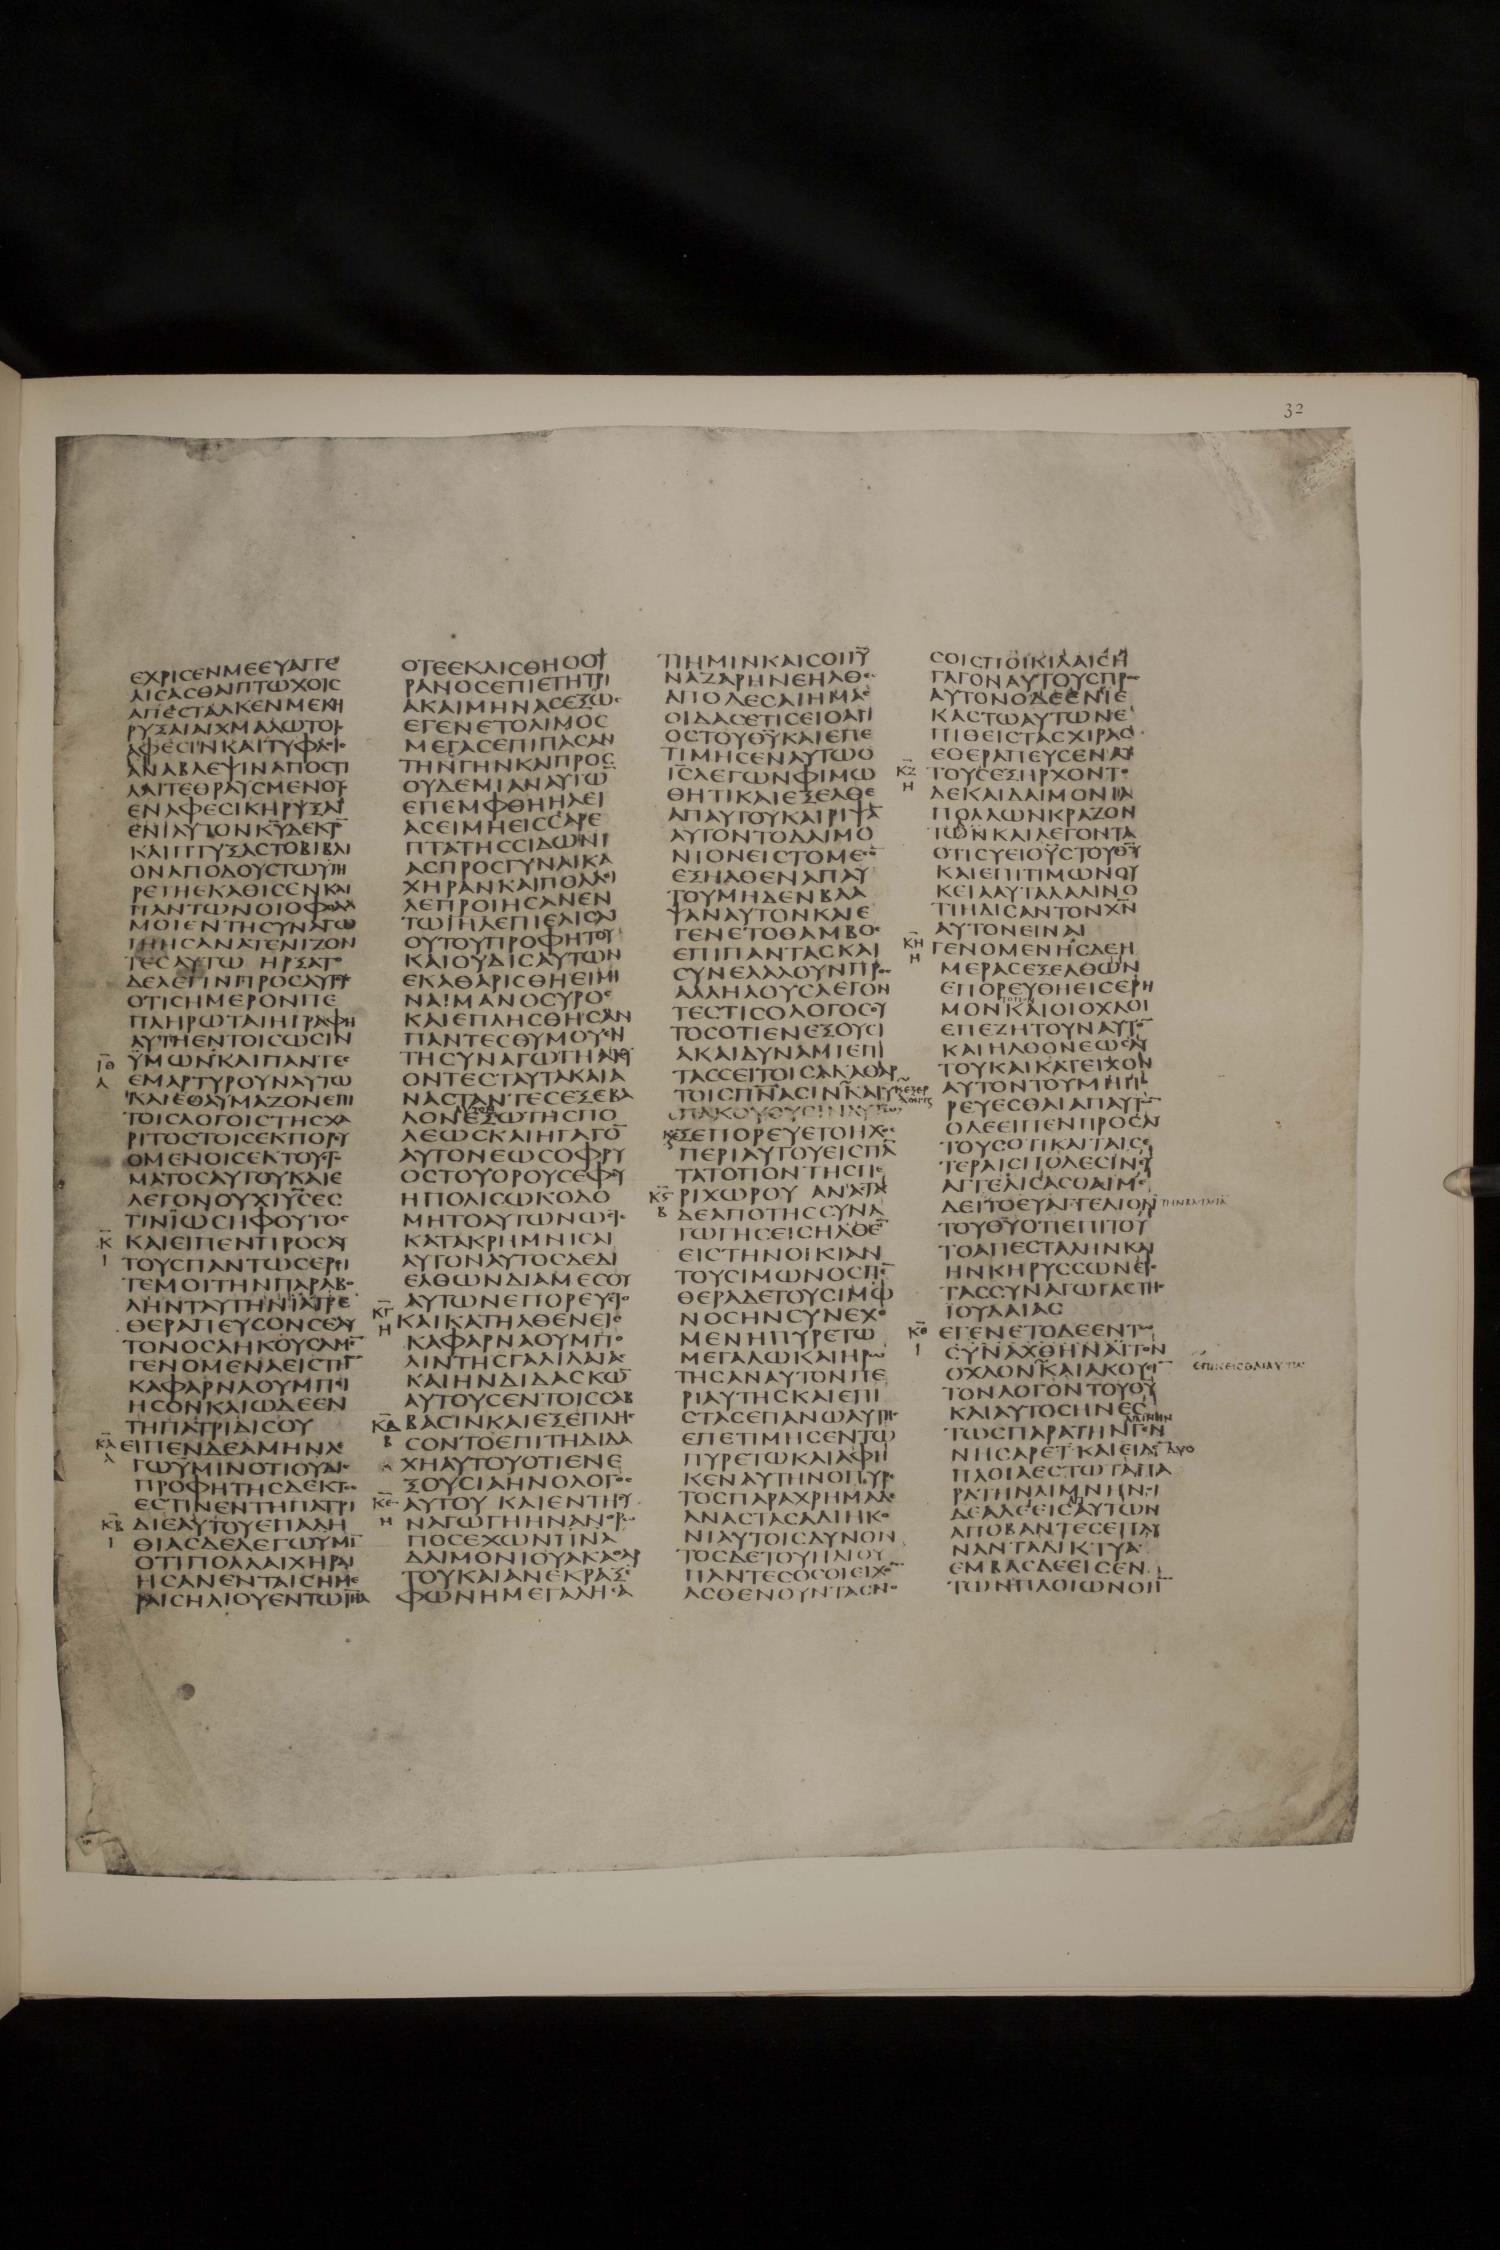 32
ΕΧΡΙϹΕΝΜΕΕΥΑΓΓΕ
ΛΙϹΑϹΘΑΙΠΤΩΧΟΙϹ
ΑΠΕϹΤΑΛΚΕΝΜΕΚΗ
ΡΥΞΑΙΑΙΧΜΑΛΩΤΟΙϹ
ΑΦΕϹΙΝΚΑΙΤΥΦΛΟΙϹ
ΑΝΑΒΛΕΨΙΝΑΠΟϹΤΙ
ΛΑΙΤΕΘΡΑΥϹΜΕΝΟΥϹ
ΕΝΑΦΕϹΙΚΗΡΥΞΑΙ
ΕΝΙΑΥΤΟΝΚΥΔΕΚΤΟ
ΚΑΙΠΤΥΞΑϹΤΟΒΙΒΛΙ
ΟΝΑΠΟΔΟΥϹΤΩΥΠΗ
ΡΕΤΗΕΚΑΘΙϹΕΝΚΑΙ
ΠΑΝΤΩΝΟΙΟΦΘΑΛ
ΜΟΙΕΝΤΗϹΥΝΑΓΩ
ΓΗΗϹΑΝΑΤΕΝΙΖΟΝ
ΤΕϹΑΥΤΩ ΗΡΞΑΤΟ
ΔΕΛΕΓΙΝΠΡΟϹΑΥΤΟΥϹ
ΟΤΙϹΗΜΕΡΟΝΠΕ
ΠΛΗΡΩΤΑΙΗΓΡΑΦΗ
ΑΥΤΗΕΝΤΟΙϹΩϹΙΝ
ΙΘ
Α
ΥΜΩΝΚΑΙΠΑΝΤΕϹ
ΕΜΑΡΤΥΡΟΥΝΑΥΤΩ
ΚΑΙΕΘΑΥΜΑΖΟΝΕΠΙ
ΤΟΙϹΛΟΓΟΙϹΤΗϹΧΑ
ΡΙΤΟϹΤΟΙϹΕΚΠΟΡΕΥ
ΟΜΕΝΟΙϹΕΚΤΟΥϹΤΟ
ΜΑΤΟϹΑΥΤΟΥΚΑΙΕ
ΛΕΓΟΝΟΥΧΙΥϹΕϹ
ΤΙΝΙΩϹΗΦΟΥΤΟϹ
Κ
Ι
ΚΑΙΕΙΠΕΝΠΡΟϹΑΥ
ΤΟΥϹΠΑΝΤΩϹΕΡΕΙ
ΤΕΜΟΙΤΗΝΠΑΡΑΒΟ
ΛΗΝΤΑΥΤΗΝΙΑΤΡΕ
ΘΕΡΑΠΕΥϹΟΝϹΕΑΥ
ΤΟΝΟϹΑΗΚΟΥϹΑΜΕ
ΓΕΝΟΜΕΝΑΕΙϹΤΗΝ
ΚΑΦΑΡΝΑΟΥΜΠΟΙ
ΗϹΟΝΚΑΙΩΔΕΕΝ
ΤΗΠΑΤΡΙΔΙϹΟΥ
ΚΑ
Α
ΕΙΠΕΝΔΕΑΜΗΝΛΕ
ΓΩΥΜΙΝΟΤΙΟΥΔΙϹ
ΠΡΟΦΗΤΗϹΔΕΚΤΟϹ
ΕϹΤΙΝΕΝΤΗΠΑΤΡΙ
ΚΒ
Ι
ΔΙΕΑΥΤΟΥΕΠΑΛΗ
ΘΙΑϹΔΕΛΕΓΩΥΜΙ
ΟΤΙΠΟΛΛΑΙΧΗΡΑΙ
ΗϹΑΝΕΝΤΑΙϹΗΜΕ
ΡΑΙϹΗΛΙΟΥΕΝΤΩΙΗΛ
ΟΤΕΕΚΛΙϹΘΗΟΟΥ
ΡΑΝΟϹΕΠΙΕΤΗΤΡΙ
ΑΚΑΙΜΗΝΑϹΕΞΩϹ
ΕΓΕΝΕΤΟΛΙΜΟϹ
ΜΕΓΑϹΕΠΙΠΑϹΑΝ
ΤΗΝΓΗΝΚΑΙΠΡΟϹ
ΟΥΔΕΜΙΑΝΑΥΤΩ
ΕΠΕΜΦΘΗΗΛΕΙ
ΑϹΕΙΜΗΕΙϹϹΑΡΕ
ΠΤΑΤΗϹϹΙΔΩΝΙ
ΑϹΠΡΟϹΓΥΝΑΙΚΑ
ΧΗΡΑΝΚΑΙΠΟΛΛΟΙ
ΛΕΠΡΟΙΗϹΑΝΕΝ
ΤΩΙΗΛΕΠΙΕΛΙϹΑΙ
ΟΥΤΟΥΠΡΟΦΗΤΟΥ
ΚΑΙΟΥΔΙϹΑΥΤΩΝ
ΕΚΑΘΑΡΙϹΘΗΕΙΜΗ
ΝΑΙΜΑΝΟϹΥΡΟϹ
ΚΑΙΕΠΛΗϹΘΗϹΑΝ
ΠΑΝΤΕϹΘΥΜΟΥΕΝ
ΤΗϹΥΝΑΓΩΓΗΑΚΟΥ
ΟΝΤΕϹΤΑΥΤΑΚΑΙΑ
ΝΑϹΤΑΝΤΕϹΕΞΕΒΑ
ΑΥΤΟΝ
ΛΟΝΕΞΩΤΗϹΠΟ
ΛΕΩϹΚΑΙΗΓΑΓΟ
ΑΥΤΟΝΕΩϹΟΦΡΥ
ΟϹΤΟΥΟΡΟΥϹΕΦΟΥ
ΗΠΟΛΙϹΩΚΟΔΟ
ΜΗΤΟΑΥΤΩΝΩϹΤΕ
ΚΑΤΑΚΡΗΜΝΙϹΑΙ
ΑΥΤΟΝΑΥΤΟϹΔΕΔΙ
ΕΛΘΩΝΔΙΑΜΕϹΟΥ
ΑΥΤΩΝΕΠΟΡΕΥΕΤΟ
ΚΓ
Η
ΚΑΙΚΑΤΗΛΘΕΝΕΙϹ
ΚΑΦΑΡΝΑΟΥΜΠΟ
ΛΙΝΤΗϹΓΑΛΙΛΑΙΑϹ
ΚΑΙΗΝΔΙΔΑϹΚΩ
ΑΥΤΟΥϹΕΝΤΟΙϹϹΑΒ
ΚΔ
Β
ΒΑϹΙΝΚΑΙΕΞΕΠΛΗϹ
ϹΟΝΤΟΕΠΙΤΗΔΙΔΑ
ΧΗΑΥΤΟΥΟΤΙΕΝΕ
ΞΟΥϹΙΑΗΝΟΛΟΓΟϹ
ΚΕ
Η
ΑΥΤΟΥ ΚΑΙΕΝΤΗϹΥ
ΝΑΓΩΓΗΗΝΑΝΟϹ
ΠΟϹΕΧΩΝΤΙΝΑ
ΔΑΙΜΟΝΙΟΥΑΚΑΘΑΡ
ΤΟΥΚΑΙΑΝΕΚΡΑΞΕ
ΦΩΝΗΜΕΓΑΛΗΕΑ
ΤΙΗΜΙΝΚΑΙϹΟΙΙΥ
ΝΑΖΑΡΗΝΕΗΛΘΕϹ
ΑΠΟΛΕϹΑΙΗΜΑϹ
ΟΙΔΑϹΕΤΙϹΕΙΟΑΓΙ
ΟϹΤΟΥΘΥΚΑΙΕΠΕ
ΤΙΜΗϹΕΝΑΥΤΩΟ
ΙϹΛΕΓΩΝΦΙΜΩ
ΘΗΤΙΚΑΙΕΞΕΛΘΕ
ΑΠΑΥΤΟΥΚΑΙΡΙΨΑ
ΑΥΤΟΝΤΟΔΑΙΜΟ
ΝΙΟΝΕΙϹΤΟΜΕϹΟ
ΕΞΗΛΘΕΝΑΠΑΥ
ΤΟΥΜΗΔΕΝΒΛΑ
ΨΑΝΑΥΤΟΝΚΑΙΕ
ΓΕΝΕΤΟΘΑΜΒΟϹ
ΕΠΙΠΑΝΤΑϹΚΑΙ
ϹΥΝΕΛΑΛΟΥΝΠΡΟϹ
ΑΛΛΗΛΟΥϹΛΕΓΟΝ
ΤΕϹΤΙϹΟΛΟΓΟϹΟΥ
ΤΟϹΟΤΙΕΝΕΞΟΥϹΙ
ΑΚΑΙΔΥΝΑΜΙΕΠΙ
ΤΑϹϹΕΙΤΟΙϹΑΚΑΘΑΡ
ΤΟΙϹΠΝΑϹΙΝΚΑΙ
ΥΠΑΚΟΥΟΥϹΙΝΑΥΤΩ
ΚΕ
ΕΞΕΠΟΡΕΥΕΤΟΗΧΟϹ
ΠΕΡΙΑΥΤΟΥΕΙϹΠΑ
ΤΑΤΟΠΟΝΤΗϹΠΕ
ΚϚ
Β
ΡΙΧΩΡΟΥ ΑΝΑϹΤΑϹ
ΔΕΑΠΟΤΗϹϹΥΝΑ
ΓΩΓΗϹΕΙϹΗΛΘΕ
ΕΙϹΤΗΝΟΙΚΙΑΝ
ΤΟΥϹΙΜΩΝΟϹΠΕ
ΘΕΡΑΔΕΤΟΥϹΙΜΩ
ΝΟϹΗΝϹΥΝΕΧΟ
ΜΕΝΗΠΥΡΕΤΩ
ΜΕΓΑΛΩΚΑΙΗΡΩ
ΤΗϹΑΝΑΥΤΟΝΠΕ
ΡΙΑΥΤΗϹΚΑΙΕΠΙ
ϹΤΑϹΕΠΑΝΩΑΥΤΗϹ
ΕΠΕΤΙΜΗϹΕΝΤΩ
ΠΥΡΕΤΩΚΑΙΑΦΗ
ΚΕΝΑΥΤΗΝΟΠΥΡΕ
ΤΟϹΠΑΡΑΧΡΗΜΑΔΕ
ΑΝΑϹΤΑϹΑΔΙΗΚΟ
ΝΙΑΥΤΟΙϹΔΥΝΟΝ
ΤΟϹΔΕΤΟΥΗΛΙΟΥ
ΠΑΝΤΕϹΟϹΟΙΕΙΧΟΝ
ΑϹΘΕΝΟΥΝΤΑϹΝΟ
ϹΟΙϹΠΟΙΚΙΛΑΙϹΗ
ΓΑΓΟΝΑΥΤΟΥϹΠΡΟϹ
ΑΥΤΟΝΟΔΕΕΝΙΕ
ΚΑϹΤΩΑΥΤΩΝΕ
ΠΙΘΕΙϹΤΑϹΧΙΡΑϹ
ΕΘΕΡΑΠΕΥϹΕΝΑΥ
ΚΖ
Η
ΤΟΥϹΕΞΗΡΧΟΝΤΟ
ΔΕΚΑΙΔΑΙΜΟΝΙΑ
ΠΟΛΛΩΝΚΡΑΖΟΝ
ΤΩΝΚΑΙΛΕΓΟΝΤΑ
ΟΤΙϹΥΕΙΟΥϹΤΟΥΘΥ
ΚΑΙΕΠΙΤΙΜΩΝΟΥ
ΚΕΙΑΑΥΤΑΛΑΛΙΝΟ
ΤΙΗΔΙϹΑΝΤΟΝΧΝ
ΑΥΤΟΝΕΙΝΑΙ
ΚΗ
Η
ΓΕΝΟΜΕΝΗϹΔΕΗ
ΜΕΡΑϹΕΞΕΛΘΩΝ
ΕΠΟΡΕΥΘΗΕΙϹΕΡΗ
ΤΟΠΟΝ
ΜΟΝΚΑΙΟΙΟΧΛΟΙ
ΕΠΕΖΗΤΟΥΝΑΥΤΟ
ΚΑΙΗΛΘΟΝΕΩϹΑΥ
ΤΟΥΚΑΙΚΑΤΕΙΧΟΝ
ΑΥΤΟΝΤΟΥΜΗΠΟ
ΡΕΥΕϹΘΑΙΑΠΑΥΤΩ
ΟΔΕΕΙΠΕΝΠΡΟϹΑΥ
ΤΟΥϹΟΤΙΚΑΙΤΑΙϹΕ
ΤΕΡΑΙϹΠΟΛΕϹΙΝΕΥ
ΑΓΓΕΛΙϹΑϹΘΑΙΜΕ
ΔΕΙΤΟΕΥΑΓΓΕΛΙΟΝ
ΤΟΥΘΥΟΤΙΕΠΙΤΟΥ
ΤΟΑΠΕϹΤΑΛΗΝΚΑΙ
ΗΝΚΗΡΥϹϹΩΝΕΙϹ
ΤΑϹϹΥΝΑΓΩΓΑϹΤΗϹ
ΙΟΥΔΑΙΑϹ
ΚΘ
Ι
ΕΓΕΝΕΤΟΔΕΕΝΤΩ
ϹΥΝΑΧΘΗΝΑΙΤΟΝ
ΟΧΛΟΝΚΑΙΑΚΟΥΕΙ
ΤΟΝΛΟΓΟΝΤΟΥΘΥ
ΚΑΙΑΥΤΟϹΗΝΕϹ
ΛΙΜΝΗΝ
ΤΩϹΠΑΡΑΤΗΝΓΕΝ
ΝΗϹΑΡΕΤ ΚΑΙΕΙΔΕ
ΔΥΟ
ΠΛΟΙΑΕϹΤΩΤΑΠΑ
ΡΑΤΗΝΛΙΜΝΗΝΟΙ
ΔΕΑΛΕΕΙϹΑΥΤΩΝ
ΑΠΟΒΑΝΤΕϹΕΠΛΥ
ΝΑΝΤΑΔΙΚΤΥΑ
ΕΜΒΑϹΔΕΕΙϹΕΝ
ΤΩΝΠΛΟΙΩΝΟΗΝ